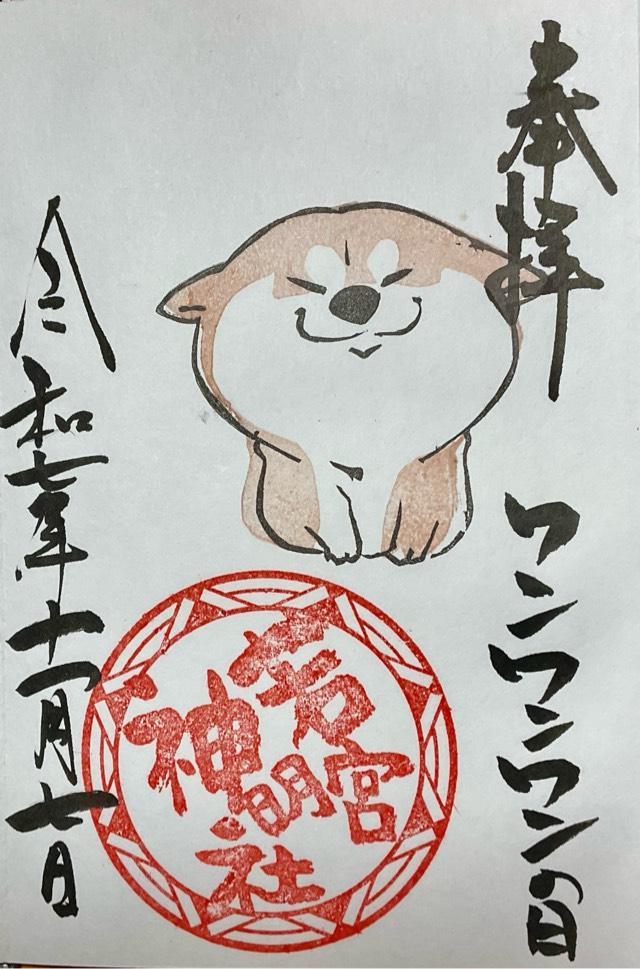 奉拝
ワンワンワンの日
若宮
神明
社
令和七年十一月七日